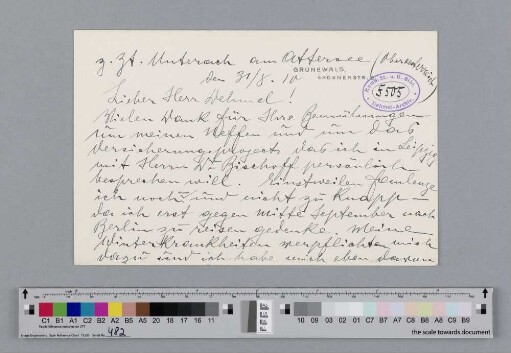 z. Zt. Unterach am Attersee (Oberösterreich)
GRUNEWALD,
den 31/8. 10
Lieber Herr Dehmel!
Vielen Dank für Ihre Bemühungen
um meinen Neffen und um das
Versicherungsproject das ich in Leipzig
mit Herrn Dr Bischoff persönlich
besprechen will. Einstweilen
ich noch und nicht zu knapp –
da ich erst gegen Mitte September nach
Berlin zu reisen gedenke. Meine
Winterkrankheiten verpflichten mich
dazu und ich habe mich eben darum
5505
Dehmel-Archiv
C1 B1 A1 C2 B2 A2 B5 A5 20 18 17 16 11
10 09 03 02 01 C7 B7 A7 C8 B8 A8 C9 B9
482
the scale towards document